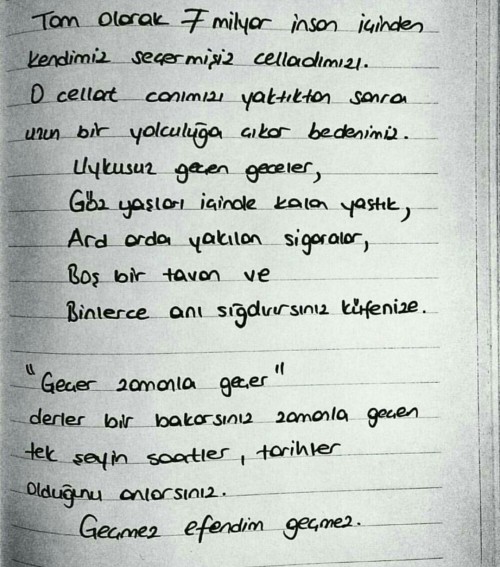 Tam olarak 7 milyar insan içinden
kendimiz seçermişiz celladımızı.
O cellat canımızı yaktıktan sonra
uzun bir yolculuğa çıkar bedenimiz.
Uykusuz geçen geceler,
Göz yaşları içinde kalan yastık,
Ard arda yakılan sigaralar,
Boş bir tavan ve
Binlerce anı sığdırırsınız küfenize.
"Geçer zamanla geçer"
derler bir bakarsınız zamanla geçen
tek şeyin saatler, tarihler
olduğunu anlarsınız.
Geçmez efendim geçmez.